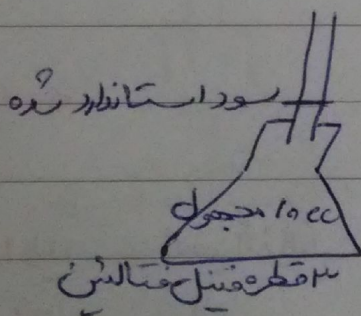 سود استاندارد شده
۱۰ cc مجهول
۳ قطره فنیل فتالئین